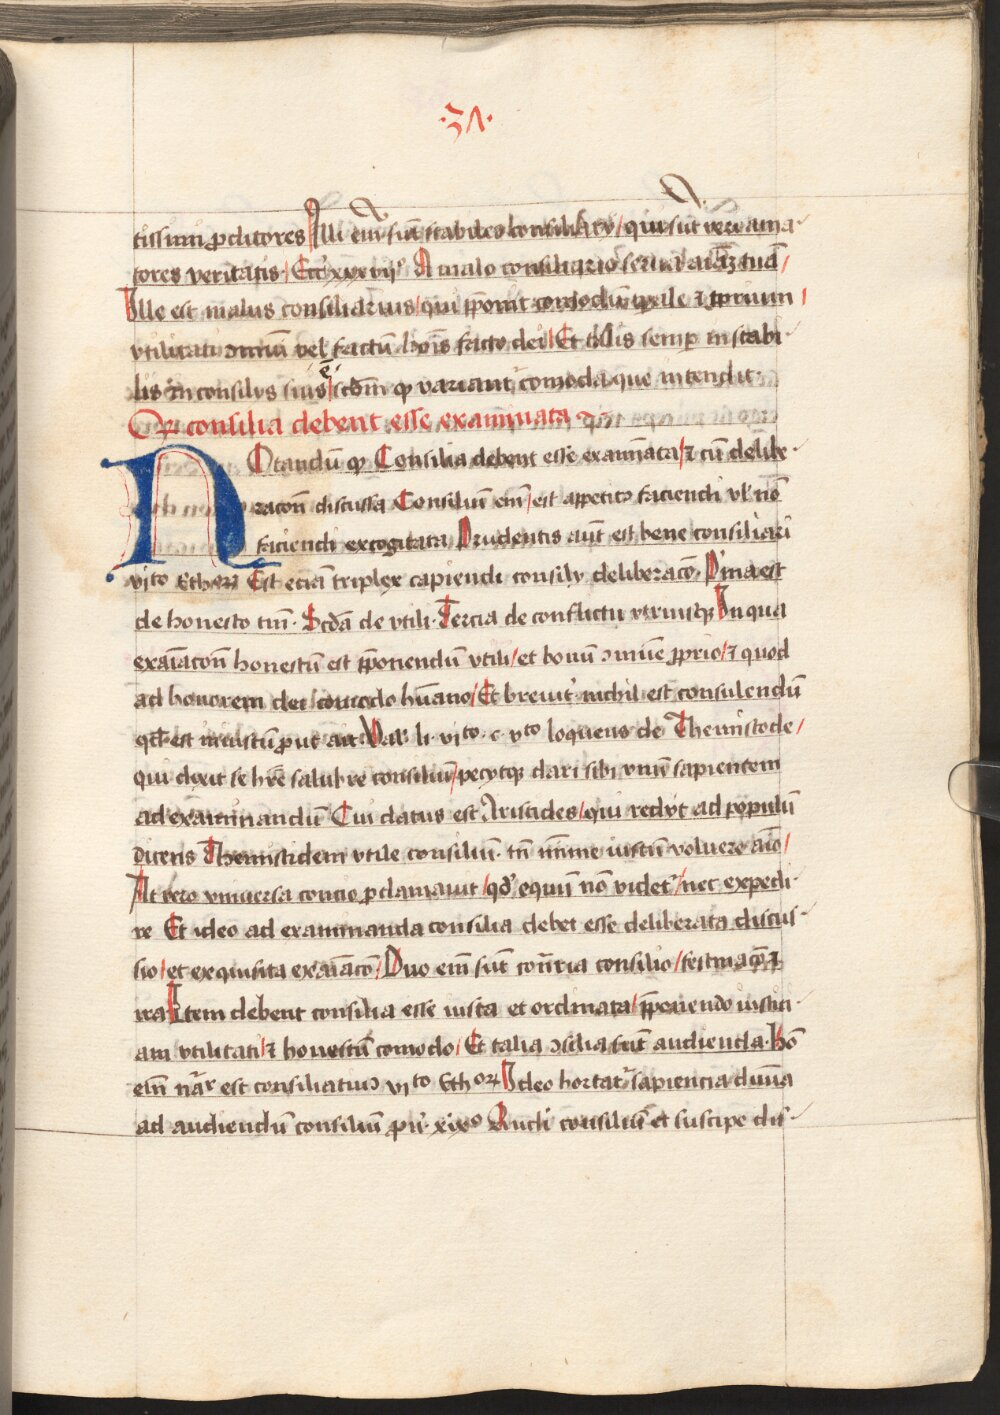 ·37·
tissimi ꝓditores Illi em̄ sūt stabiles consiliarÿ / qui sūt vere ama-
tores veritatis / Ecc̄ xxxvijº A malo consiliario serua aīaʒ tuā /
Ille est malus consiliarius / qui p̄ponit comodū vtile et ꝓprium /
vtilitati ↄmuni vel factū hoīs facto dei / Et talis semꝑ instabi-
lis in consilijs suis ē / scdm ꝙ variant comoda que intendit
Qꝫ consilia debent esse examinata
NOtandū ꝙ Consilia debent esse examīata / et cū delibe-
racōn discussa Consiliū em̄ / est appetitꝰ faciendi vl' nō
faciendi excogitata Prudentis aūt est bene consiliari
vjto Ethoꝝ Est eciā triplex capiendi consilÿ deliberacō Pīma est
de honesto tm̄ · Scdā de vtili · Tercia de conflictu vtriusqꝫ In qua
exaīacōn honestū est p̄ponendū vtili / et bonū ↄmūe ꝓprio / et quod
ad honorem dei comodo hūano / Et breuit' nichil est consulendū
qd' est iniustū ꝓut ait Val' li vjto c vto loquens de Themistode /
qui dixit se hr̄e salubre consiliū / pecÿtqꝫ dari sibi vnū sapientem
ad examinandū Cui datus est Aristides / qui redÿt ad populū
dicens Themistidem vtile consiliū · tn̄ mīme iustū voluere aīo /
At vero vniuersa concio ꝓclamauit / qd' equū nō videt' / nec expedi-
re Et ideo ad examinanda consilia debet esse deliberata discus-
sio / et exquisita exaīacō / Duo em̄ sūt cōtria consilio / festinacō et
ira Item debent consilia esse iusta et ordinata / p̄ponendo iustici-
am vtilitati / et honestū comodo / Et talia ↄsilia sūt audienda · Hō
em̄ nar' est consiliatiuꝰ vjto Ethoꝝ Ideo hortat' sapiencia diuina
ad audiendū consiliū ꝓu' xixº Audi consiliū et suscipe dis-